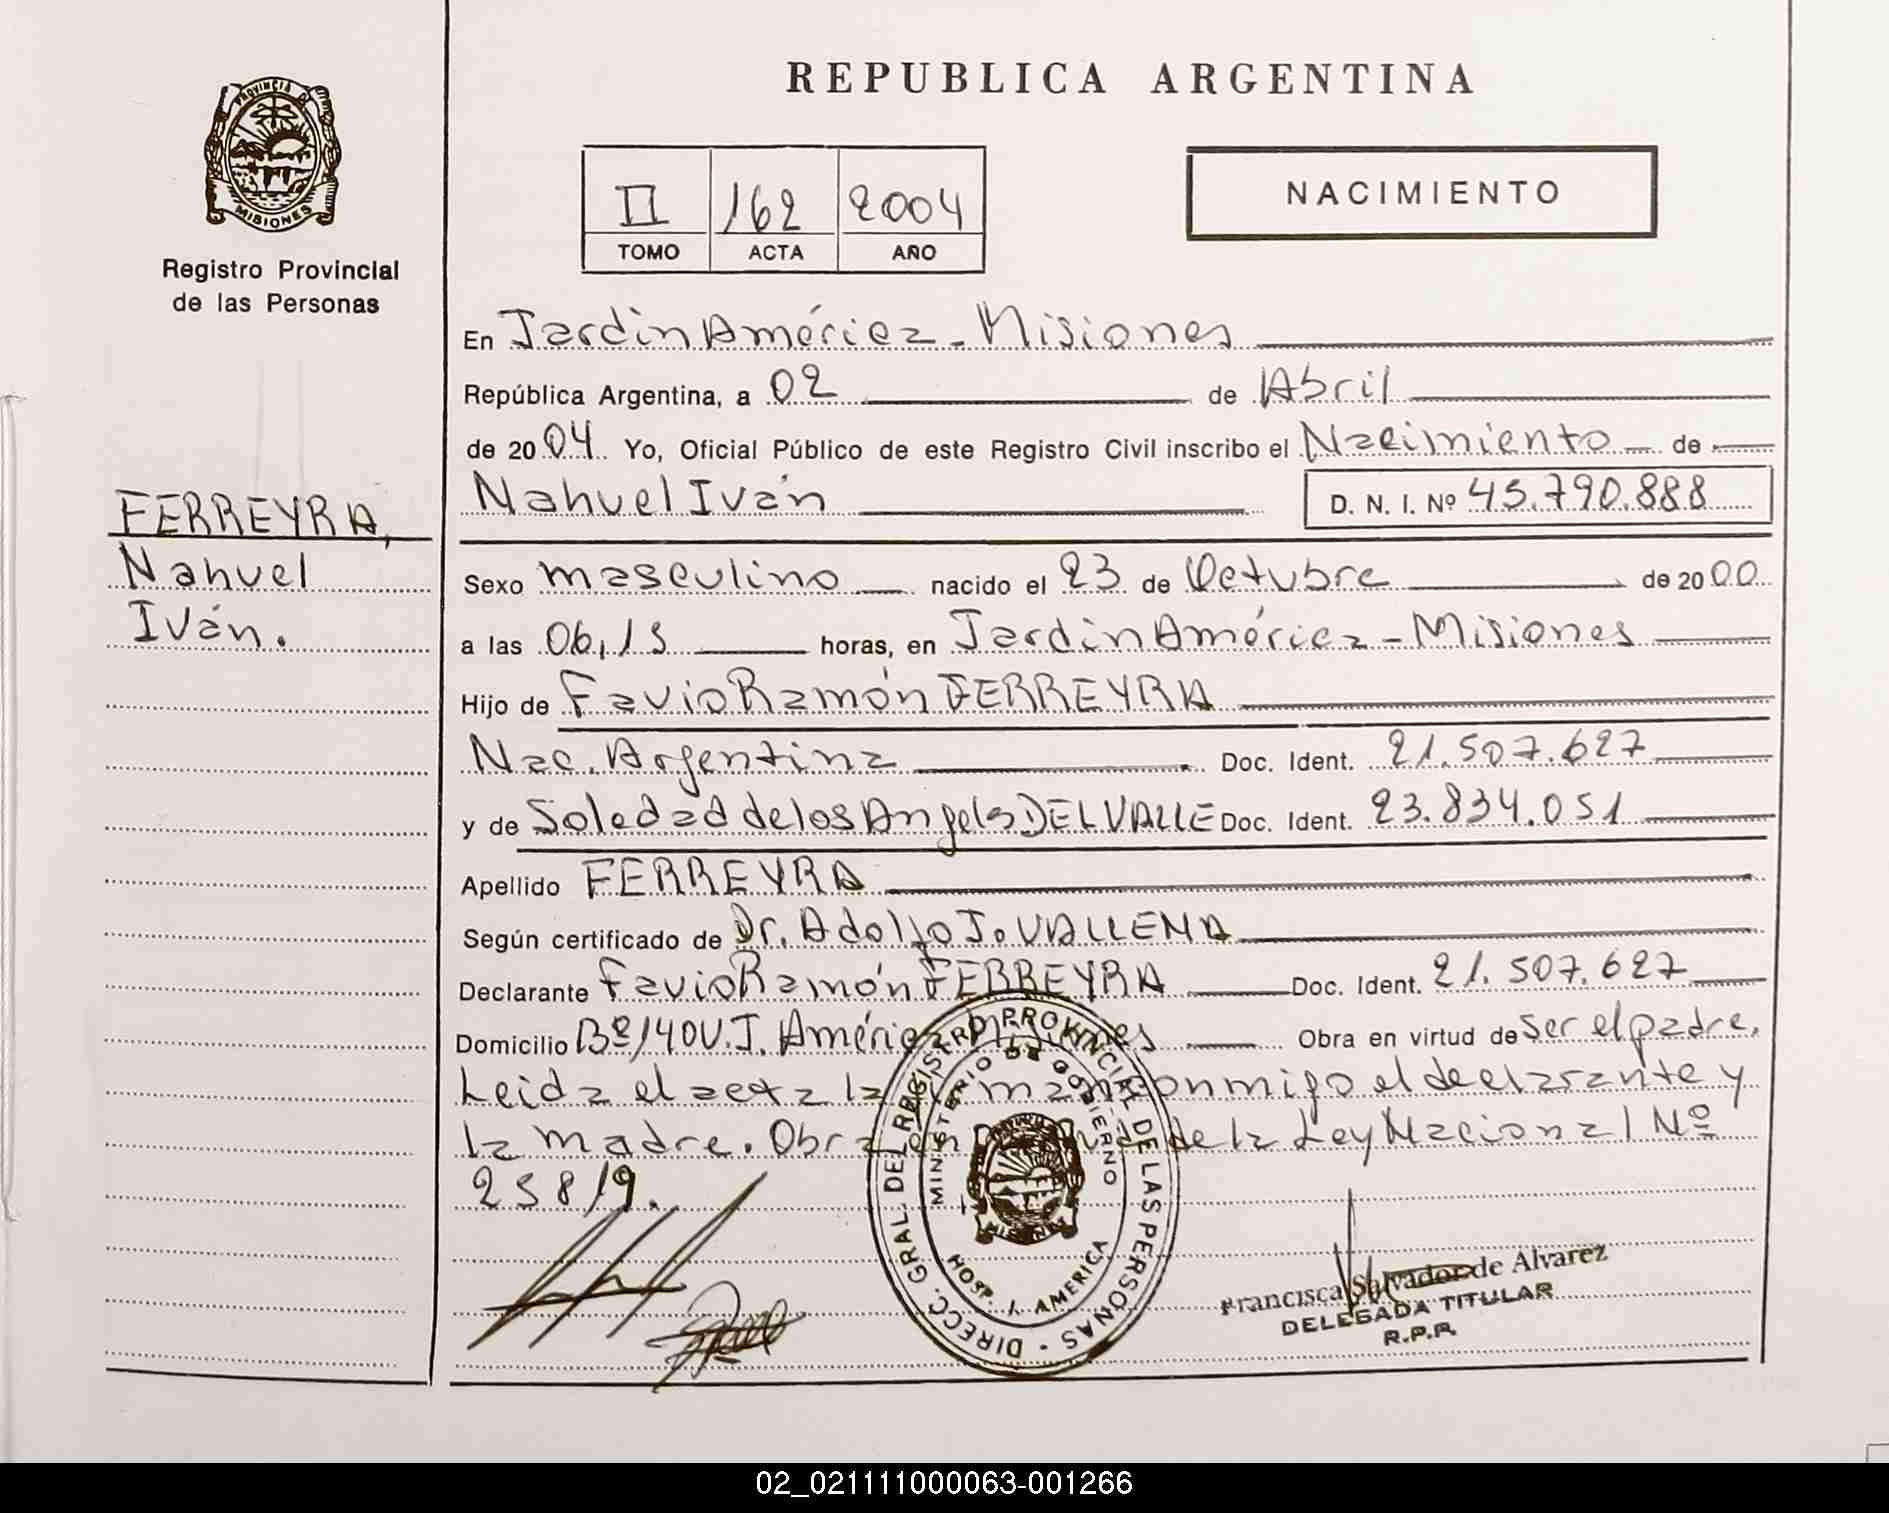 PROVINCIA DE
MISIONES
Registro Provincial
de las Personas
FERREYRA,
Nahuel
Iván.
REPUBLICA ARGENTINA
II 162 2004
TOMO ACTA AÑO
NACIMIENTO
En Jardín América - Misiones
República Argentina, a 02 de Abril
de 2004 Yo, Oficial Público de este Registro Civil inscribo el Nacimiento de
Nahuel Iván D. N. I. Nº 45.790.888
Sexo masculino nacido el 23 de Octubre de 2000
a las 06,15 horas, en Jardín América - Misiones
Hijo de Favio Ramón FERREYRA
Nac. Argentina Doc. Ident. 21.507.627
y de Soledad de los Angeles DEL VALLE Doc. Ident. 23.834.051
Apellido FERREYRA
Según certificado de Dr. Adolfo J. VALLENA
Declarante Favio Ramón FERREYRA Doc. Ident. 21.507.627
Domicilio Bº 140 V. J. América Misiones Obra en virtud de ser el padre.
Leida el acta la firman conmigo el declarante y
la madre. Obra en de la Ley Nacional Nº
25819.
DIRECC. GRAL. DEL REGISTRO PROVINCIAL DE LAS PERSONAS
MINISTERIO DE GOBIERNO
MISIONES
HOSP. J. AMERICA
Francisca Salvador de Alvarez
DELEGADA TITULAR
R.P.P.
02_021111000063-001266